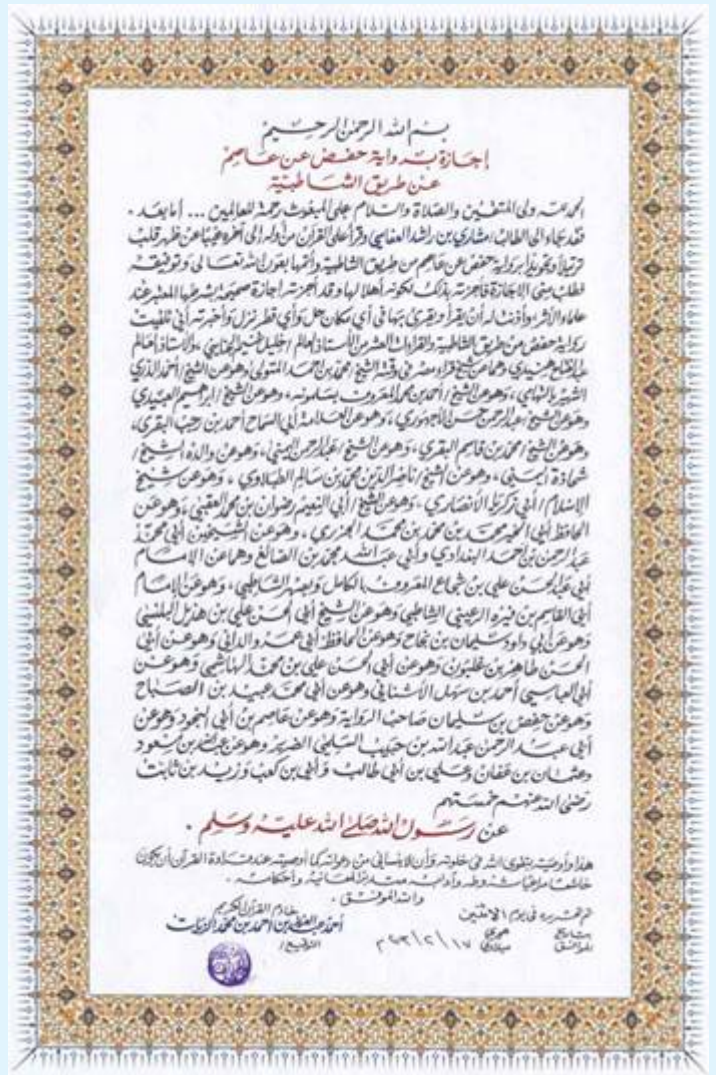 بسم الله الرحمن الرحيم
إجازة برواية حفص عن عاصم
عن طريق الشاطبية
الحمد لله ولي المتقين والصلاة والسلام على المبعوث رحمة للعالمين ... أما بعد .
فقد جاء إلى الطالب / مشاري بن راشد العفاسي وقرأ على القرآن من أوله إلى آخره غيبا عن ظهر قلب
ترتيلا وتجويدا برواية حفص عن عاصم من طريق الشاطبية وأتمها بعون الله تعالى وتوفيقه
فطلب مني الإجازة فأجزته بذلك لكونه أهلا لها وقد أجزته إجازة صحيحة بشرطها المعتبر عند
علماء الأثر وأذنت له أن يقرأ ويقرئ بها في أي مكان حل وأي قطر نزل وأخبرته أني تلقيت
رواية حفص من طريق الشاطبية والقراءات العشر من الأستاذ العالم / خليل غنيم الجنايني ، والأستاذ العالم
عبد الفتاح هنيدي ، وهما عن شيخ قراء مصر في وقته الشيخ محمد بن أحمد المتولي وهو عن الشيخ / أحمد الدري
الشهير بالتهامي ، وهو عن الشيخ / أحمد بن محمد المعروف بسلمونه ، وهو عن الشيخ / إبراهيم العبيدي
وهو عن الشيخ / عبد الرحمن حسن الأجهوري ، وهو عن العلامة أبي السماح أحمد بن رجب البقري ،
وهو عن الشيخ / محمد بن قاسم البقري ، وهو عن الشيخ / عبد الرحمن اليمني ، وهو عن والده الشيخ /
شحاذة اليمني ، وهو عن الشيخ / ناصر الدين محمد بن سالم الطبلاوي ، وهو عن شيخ
الإسلام / أبي زكريا الأنصاري ، وهو عن الشيخ / أبي النعيم رضوان بن محمد العقبي ، وهو عن
الحافظ أبي الخير محمد بن محمد بن محمد الجزري ، وهو عن الشيخين أبي محمد
عبد الرحمن بن أحمد البغدادي وأبي عبد الله محمد بن الصائغ وهما عن الإمام
أبي عبد الحسن علي بن شجاع المعروف بالكامل وبصهر الشاطبي ، وهو عن الإمام
أبي القاسم بن فيره الرعيني الشاطبي وهو عن الشيخ أبي الحسن علي بن هذيل البلنسي
وهو عن أبي داود سليمان بن نجاح وهو عن الحافظ أبي عمرو الداني وهو عن أبي
الحسن طاهر بن غلبون وهو عن أبي الحسن علي بن محمد الهاشمي وهو عن
أبي العباس أحمد بن سهل الأشناني وهو عن أبي محمد عبيد بن الصباح
وهو عن حفص بن سليمان صاحب الرواية وهو عن عاصم بن أبي النجود وهو عن
أبي عبد الرحمن عبد الله بن حبيب السلمي الضرير وهو عن عبد الله بن مسعود
وعثمان بن عفان وعلي بن أبي طالب وأبي بن كعب وزيد بن ثابت
رضي الله عنهم خمستهم
عن رسول الله صلى الله عليه وسلم .
هذا وأوصيه بتقوى الله في خلوته وأن لا ينساني من دعواته كما أوصيه عند قراءة القرآن أن يكون
خاشعا مراعيا شروطه وآدابه متدبرا لمعانيه وأحكامه .
والله الموفق .
تم تحريره في يوم الاثنين
خادم القرآن الكريم
بتاريخ هجري
أحمد عبد العزيز بن أحمد بن محمد الزيات
الموافق ميلادي
التوقيع /